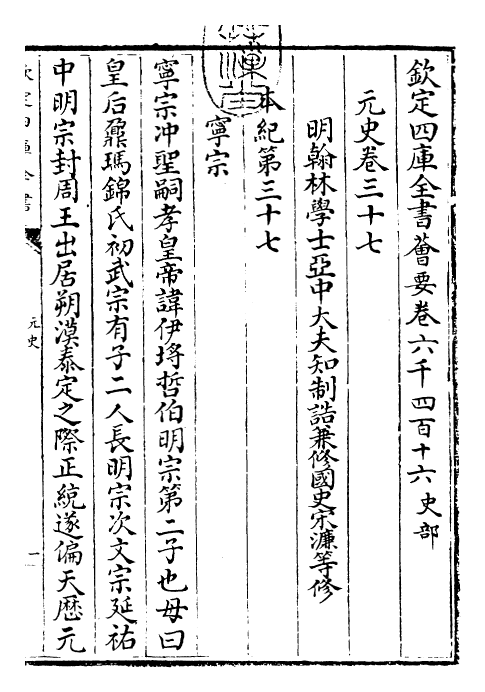 欽定四庫全書薈要卷六千四百十六史部
元史卷三十七
明翰林學士亞中大夫知制誥兼修國史宋濂等修
本紀第三十七
寧宗
寧宗冲聖嗣孝皇帝諱伊埒哲伯明宗第二子也母曰
皇后鼐瑪錦氏初武宗有子二人長明宗次文宗延祐
中明宗封周王出居朔漠泰定之際正統遂偏天厯元
元史
一